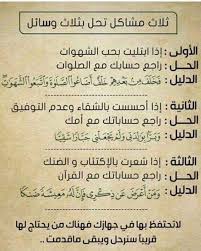 ثلاث مشاكل تحل بثلاث وسائل
الأولى : إذا ابتليت بحب الشهوات
الحــل : راجع حساباتك مع الصلوات
الدليل : فَخَلَفَ مِن بَعْدِهِمْ خَلْفٌ أَضَاعُوا الصَّلَاةَ وَاتَّبَعُوا الشَّهَوَاتِ
الثانية : إذا أحسست بالشقاء وعدم التوفيق
الحــل : راجع حساباتك مع أمك
الدليل : وَبَرًّا بِوَالِدَتِي وَلَمْ يَجْعَلْنِي جَبَّارًا شَقِيًّا
الثالثة : إذا شعرت بالإكتئاب و الضنك
الحــل : راجع حساباتك مع القرآن
الدليل : وَمَنْ أَعْرَضَ عَن ذِكْرِي فَإِنَّ لَهُ مَعِيشَةً ضَنكًا
لاتحتفظ بها في جهازك فهناك من يحتاج لها
قريباً سنرحل ويبقى ماقدمت ..